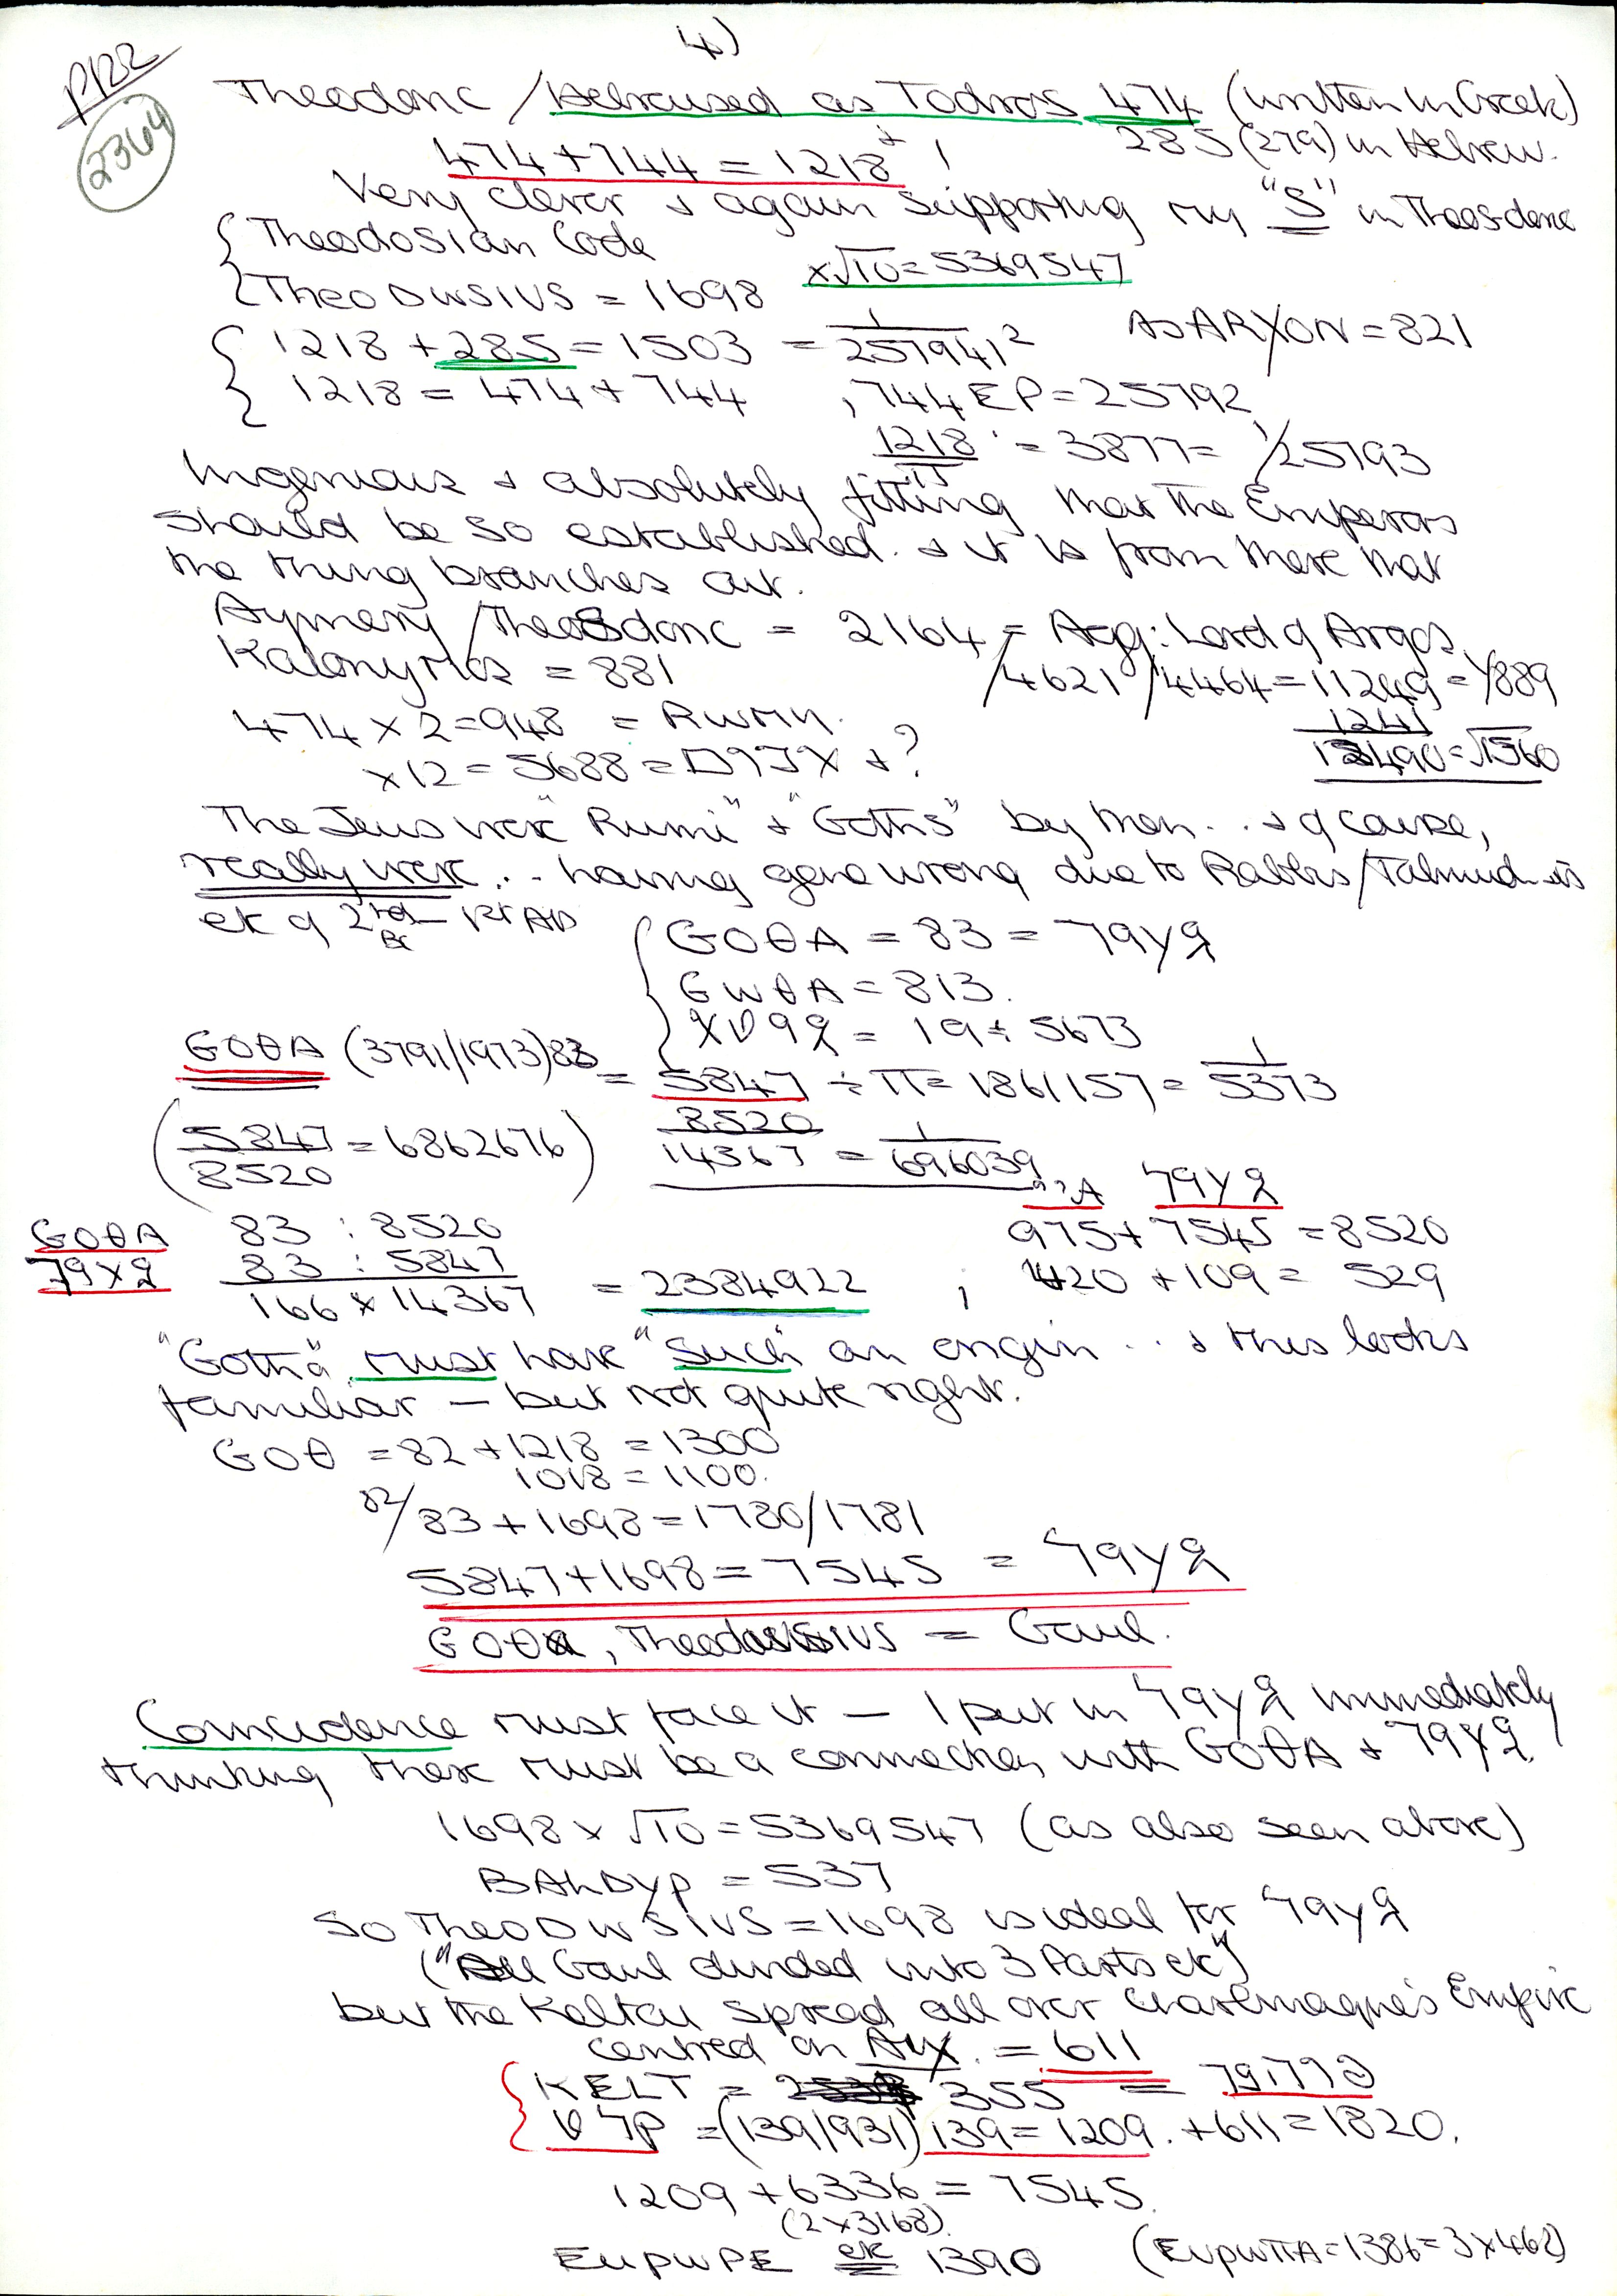 4)
P122
2364
Theodoric / Hebraised as Todros 474 (written in Greek)
474 + 744 = 1218 + ! 285 (279) in Hebrew.
Very clever & again supporting my "S" in Theosdoric
Theodosian Code
×√10 = 5369547
TheoDWSIVS = 1698
1218 + 285 = 1503 = 1/257941² As ARXON = 821
1218 = 474 + 744 , 744 EP = 25792
1218/π = 3877 = 1/25793
Ingenious & absolutely fitting that the Emperors
should be so established. & it is from there that
the thing branches out.
Aymery / Theosdoric = 2164 = Agg: Lord of Argos
Kalonymos = 881 /4621 /4464 = 11249 = 1/889
474 × 2 = 948 = RWMH. 1241
×12 = 5688 = & ? = √1560
The Jews were "Rumi" & "Goths" by then.. & of course,
really were... having gone wrong due to Rabbis/Talmudists
etc of 2nd BC – 1st AD
GOθA = 83 =
GWθA = 813.
= 19 ÷ 5673
GOθA (3791/1973) 83 = 5847 ÷ π = 1861157 = 1/5373
(5847/8520 = 6862676) 8520
14367 = 1/696039
GOθA 83 : 8520 975 + 7545 = 8520
83 : 5847
166 × 14367 = 2384922 ; 420 + 109 = 529
"Gotha" must have "such" an origin... & this looks
familiar – but not quite right.
GOθ = 82 + 1218 = 1300
1018 = 1100.
82/83 + 1698 = 1780/1781
5847 + 1698 = 7545 =
GOθA, Theodosius = Gaul.
Coincidence must face it – I put in immediately
thinking there must be a connection with GOθA &
1698 × √10 = 5369547 (as also seen above)
BAhDyp = 537
So TheoDWSIVS = 1698 is ideal for
("All Gaul divided into 3 Parts etc")
but the Keltai spread all over Charlemagne's Empire
centred on AIX. = 611
KELT = 355 =
= (1391/931) 139 = 1209. + 611 = 1820.
1209 + 6336 = 7545.
(2 × 3168).
EUPWPE etc 1390 (EUPWΠA = 1386 = 3 × 462)